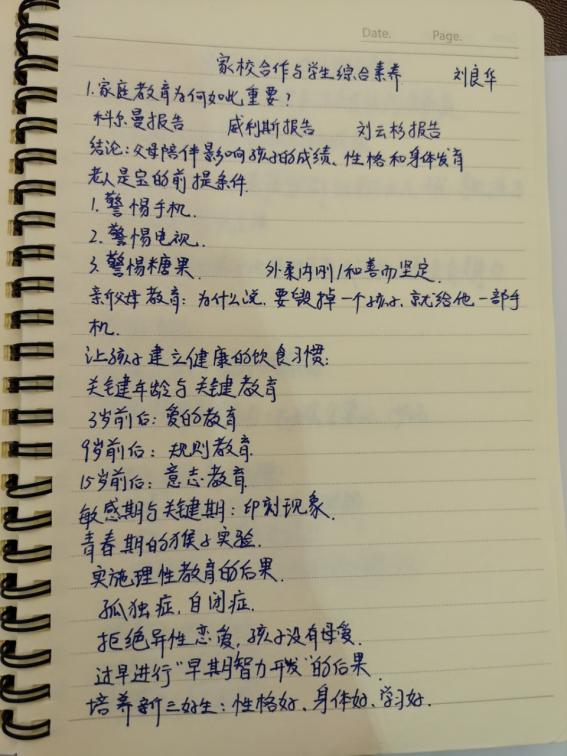 Date. Page.
家校合作与学生综合素养 刘良华
1.家庭教育为何如此重要?
科尔曼报告 威利斯报告 刘云杉报告
结论:父母陪伴影响孩子的成绩、性格和身体发育
老人是宝的前提条件.
1.警惕手机.
2.警惕电视.
3.警惕糖果. 外柔内刚/和善而坚定.
新父母教育:为什么说,要毁掉一个孩子,就给他一部手
机.
让孩子建立健康的饮食习惯:
关键年龄与关键教育
3岁前后:爱的教育
9岁前后:规则教育.
15岁前后:意志教育.
敏感期与关键期:印刻现象.
青春期的猴子实验.
实施理性教育的后果.
孤独症,自闭症.
拒绝异性恋爱,孩子没有母爱.
过早进行"早期智力开发"的后果.
培养新三好生:性格好、身体好、学习好.